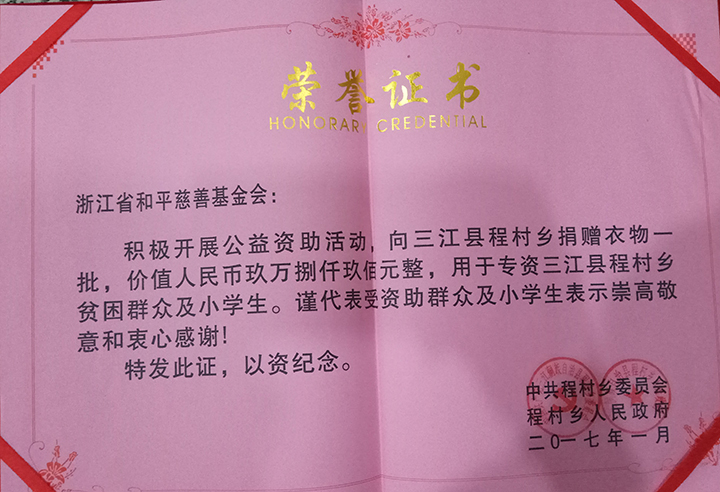 荣誉证书
HONORARY CREDENTIAL
浙江省和平慈善基金会：
积极开展公益资助活动，向三江县程村乡捐赠衣物一
批，价值人民币玖万捌仟玖佰元整，用于专资三江县程村乡
贫困群众及小学生。谨代表受资助群众及小学生表示崇高敬
意和衷心感谢！
特发此证，以资纪念。
中共程村乡委员会
程村乡人民政府
二0一七年一月